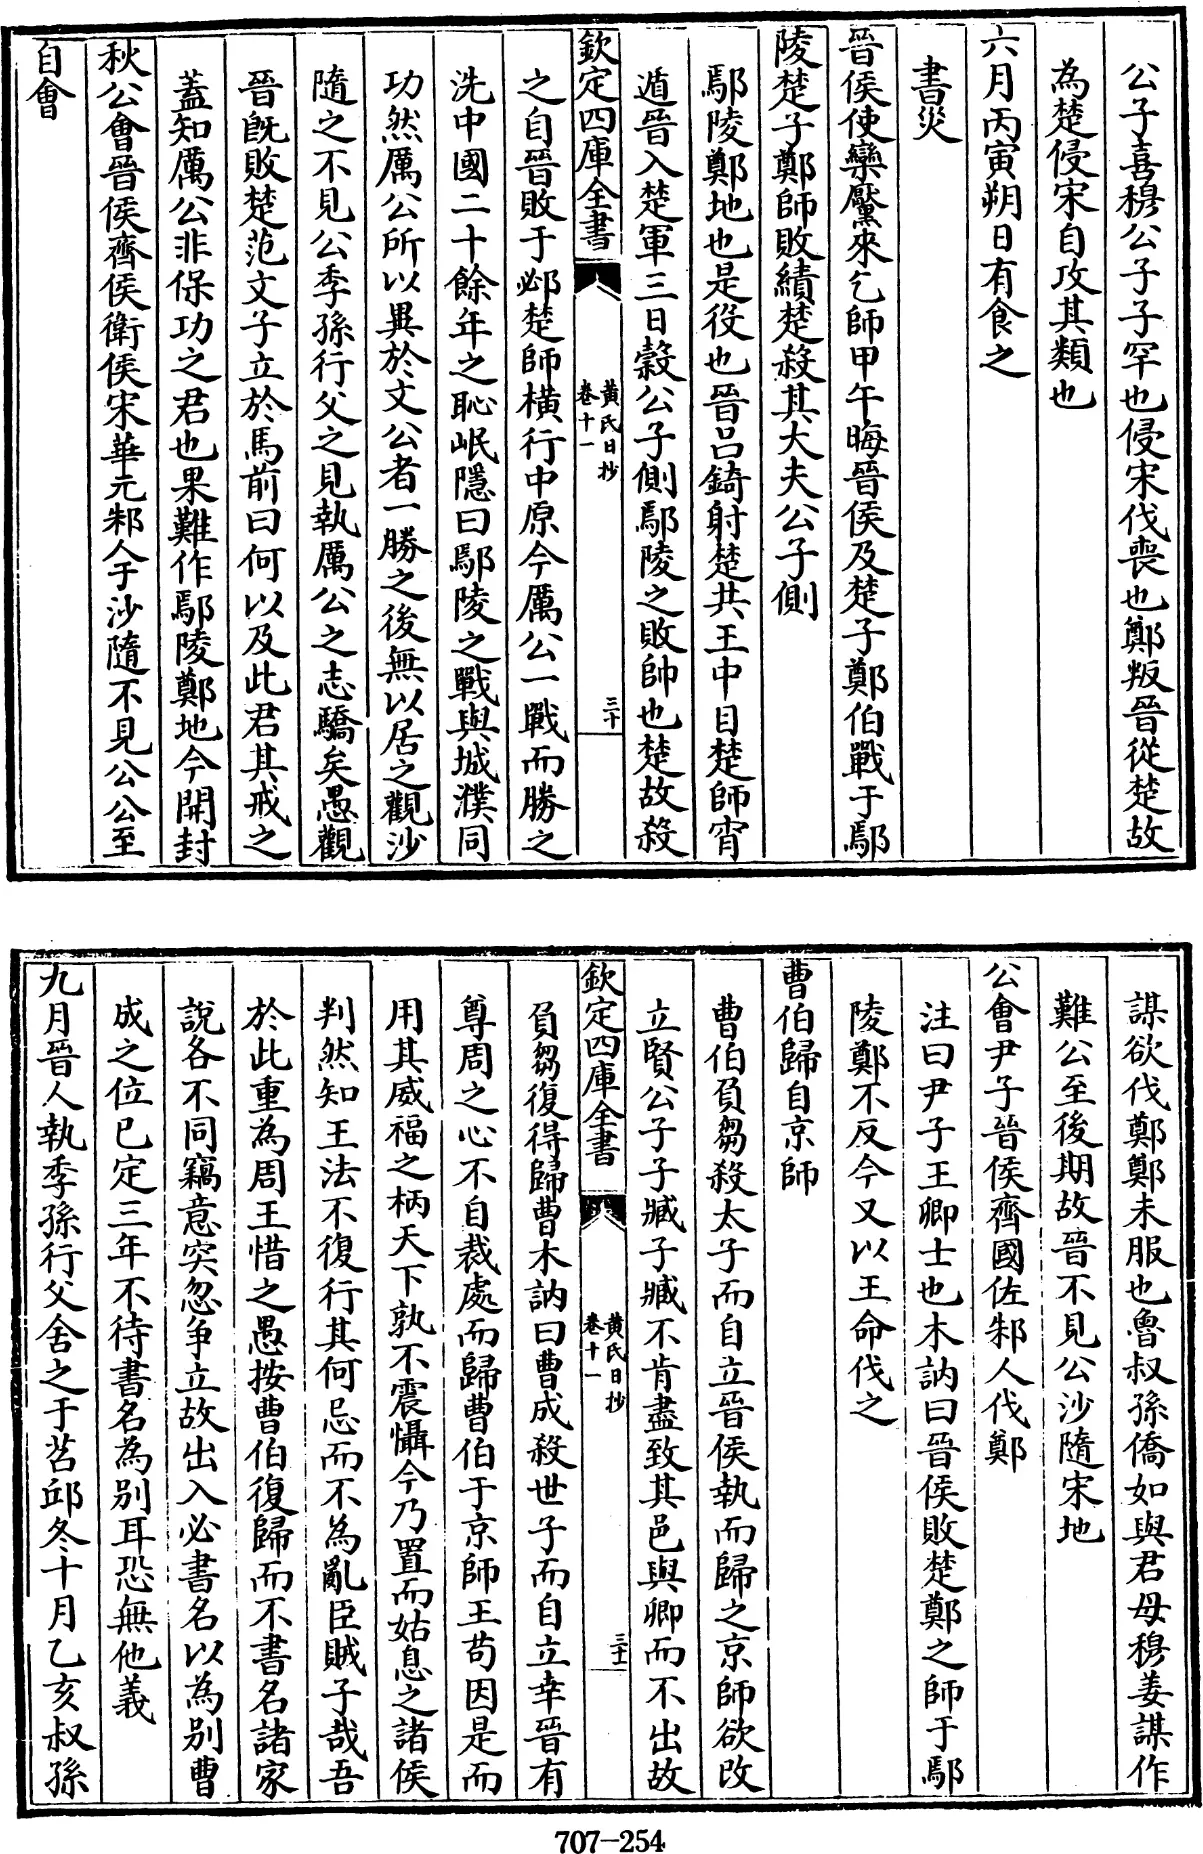 公子喜穆公子子罕也侵宋伐喪也鄭叛晉從楚故
為楚侵宋自攻其類也
六月丙寅朔日有食之
書災
晉侯使欒黶來乞師甲午晦晉侯及楚子鄭伯戰于鄢
陵楚子鄭師敗績楚殺其大夫公子側
鄢陵鄭地也是役也晉呂錡射楚共王中目楚師宵
遁晉入楚軍三日糓公子側鄢陵之敗帥也楚故殺
欽定四庫全書
黄氏日抄
卷十一
三十
之自晉敗于邲楚師横行中原今厲公一戰而勝之
洗中國二十餘年之恥岷隱曰鄢陵之戰與城濮同
功然厲公所以異於文公者一勝之後無以居之觀沙
隨之不見公季孫行父之見執厲公之志驕矣愚觀
晉既敗楚范文子立於馬前曰何以及此君其戒之
蓋知厲公非保功之君也果難作鄢陵鄭地今開封
秋公會晉侯齊侯衛侯宋華元邾人于沙隨不見公公至
自會
謀欲伐鄭鄭未服也魯叔孫僑如與君母穆姜謀作
難公至後期故晉不見公沙隨宋地
公會尹子晉侯齊國佐邾人伐鄭
注曰尹子王卿士也木訥曰晉侯敗楚鄭之師于鄢
陵鄭不反今又以王命伐之
曹伯歸自京師
曹伯負芻殺太子而自立晉侯執而歸之京師欲改
立賢公子子臧子臧不肯盡致其邑與卿而不出故
欽定四庫全書
黄氏日抄
卷十一
三十一
負芻復得歸曹木訥曰曹成殺世子而自立幸晉有
尊周之心不自裁處而歸曹伯于京師王茍因是而
用其威福之柄天下孰不震懾今乃置而姑息之諸侯
判然知王法不復行其何忌而不為亂臣賊子哉吾
於此重為周王惜之愚按曹伯復歸而不書名諸家
說各不同竊意突忽争立故出入必書名以為別曹
成之位已定三年不待書名為別耳恐無他義
九月晉人執季孫行父舍之于苕邱冬十月乙亥叔孫
707-254